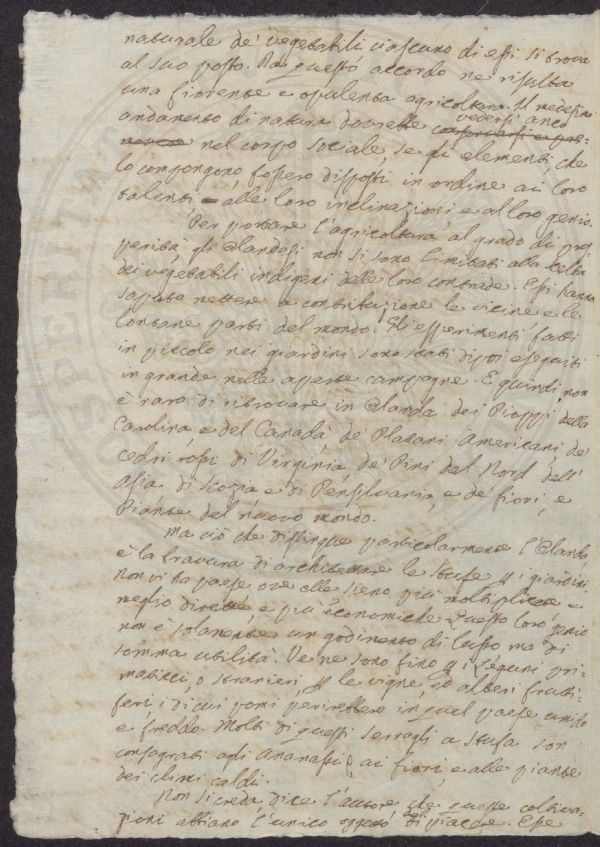 naturale de' vegetabili ciascuno di essi si trova
al suo posto. Da questo accordo ne risulta
una fiorente e opulenta agricoltura. Il medesimo
andamento di natura dovrebbe conservarsi e pre-
vedersi anco
nel corpo sociale, se gli elementi, che
lo compongono, fossero disposti in ordine ai loro
talenti alle loro inclinazioni e al loro genio.
Per portare l'agricoltura al grado di pros-
perità gli Olandesi non si sono limitati alla coltura
dei vegetabili indigeni delle loro contrade. Essi hanno
saputo mettere a contribuzione le vicine e le
lontane parti del mondo. Gli esperimenti fatti
in piccolo nei giardini sono stati dipoi eseguiti
in grande nelle aperte campagne. E quindi non
è raro di ritrovare in Olanda dei Pioppi della
Carolina e del Canadà de' Platani Americani de'
cedri rossi di Virginia, de' Pini del Nord dell'
Asia di Scozia e di Pensilvania, e de' fiori, e
Piante del nuovo mondo.
Ma ciò che distingue particolarmente l'Olanda
è la bravura di architettare le stufe p i giardini
Non vi ha paese ove elle sieno più moltiplicate e
meglio dirette, e più economiche. Questo loro genio
non è solamente un godimento di lusso ma di
somma utilità. Ve ne sono fino p i Legumi pri-
maticci, o stranieri, p le vigne, ed alberi frutti-
feri, i di cui pomi perirebbero in quel paese umido
e freddo. Molti di questi serragli a stufa son
consagrati agli Ananassi, ai fiori, e alle piante
dei climi caldi.
Non si creda, dice l'autore che queste coltiva-
zioni abbiano l'unico oggetto di piacere. Esse